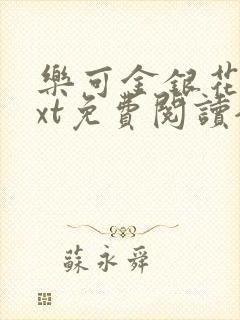 樂可金銀花
xt免費閱讀
蘇永舜